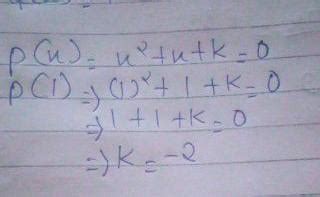 p(x) = x² + x + k = 0
p(1) ⇒ (1)² + 1 + k = 0
⇒ 1 + 1 + k = 0
⇒ k = -2